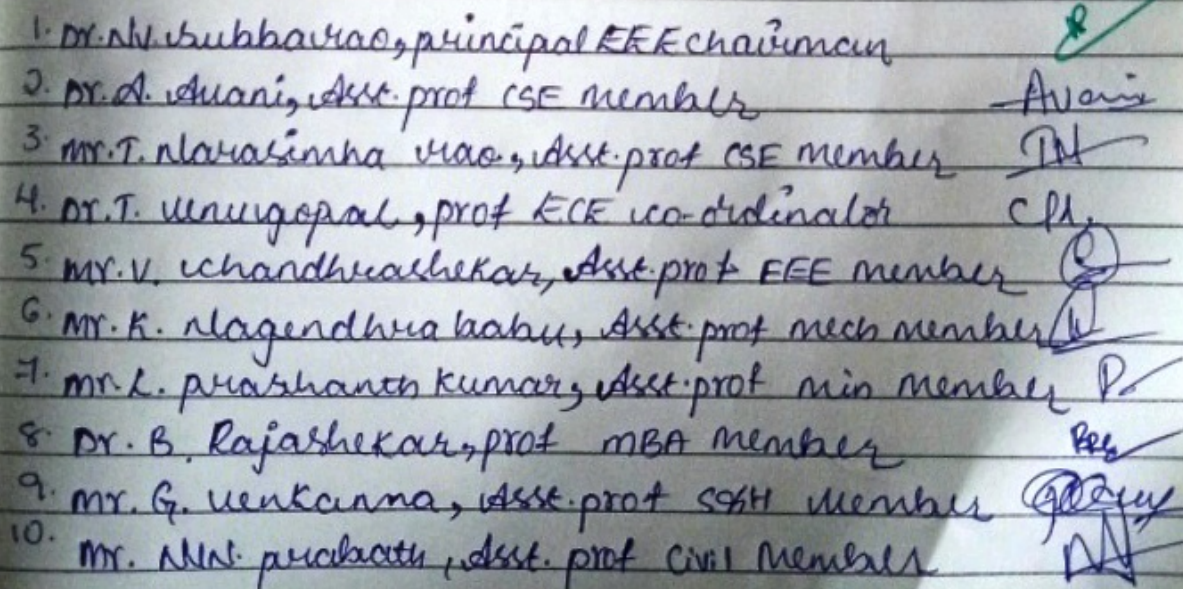 1. Dr. N.V. Subbarao, principal EEE chairman
2. Dr. A. Avani, Asst. prof CSE member Avani
3. Mr. T. Narasimha rao, Asst. prof CSE member TN
4. Dr. T. Venugopal, prof ECE co-ordinator
5. Mr. V. Chandhrashekar, Asst. prof EEE member
6. Mr. K. Nagendhra babu, Asst. prof mech member
7. Mr. L. prashanth Kumar, Asst. prof min member P
8. Dr. B. Rajashekar, prof MBA member
9. Mr. G. Venkanna, Asst. prof S&H member
10. Mr. prabath, Asst. prof Civil Member